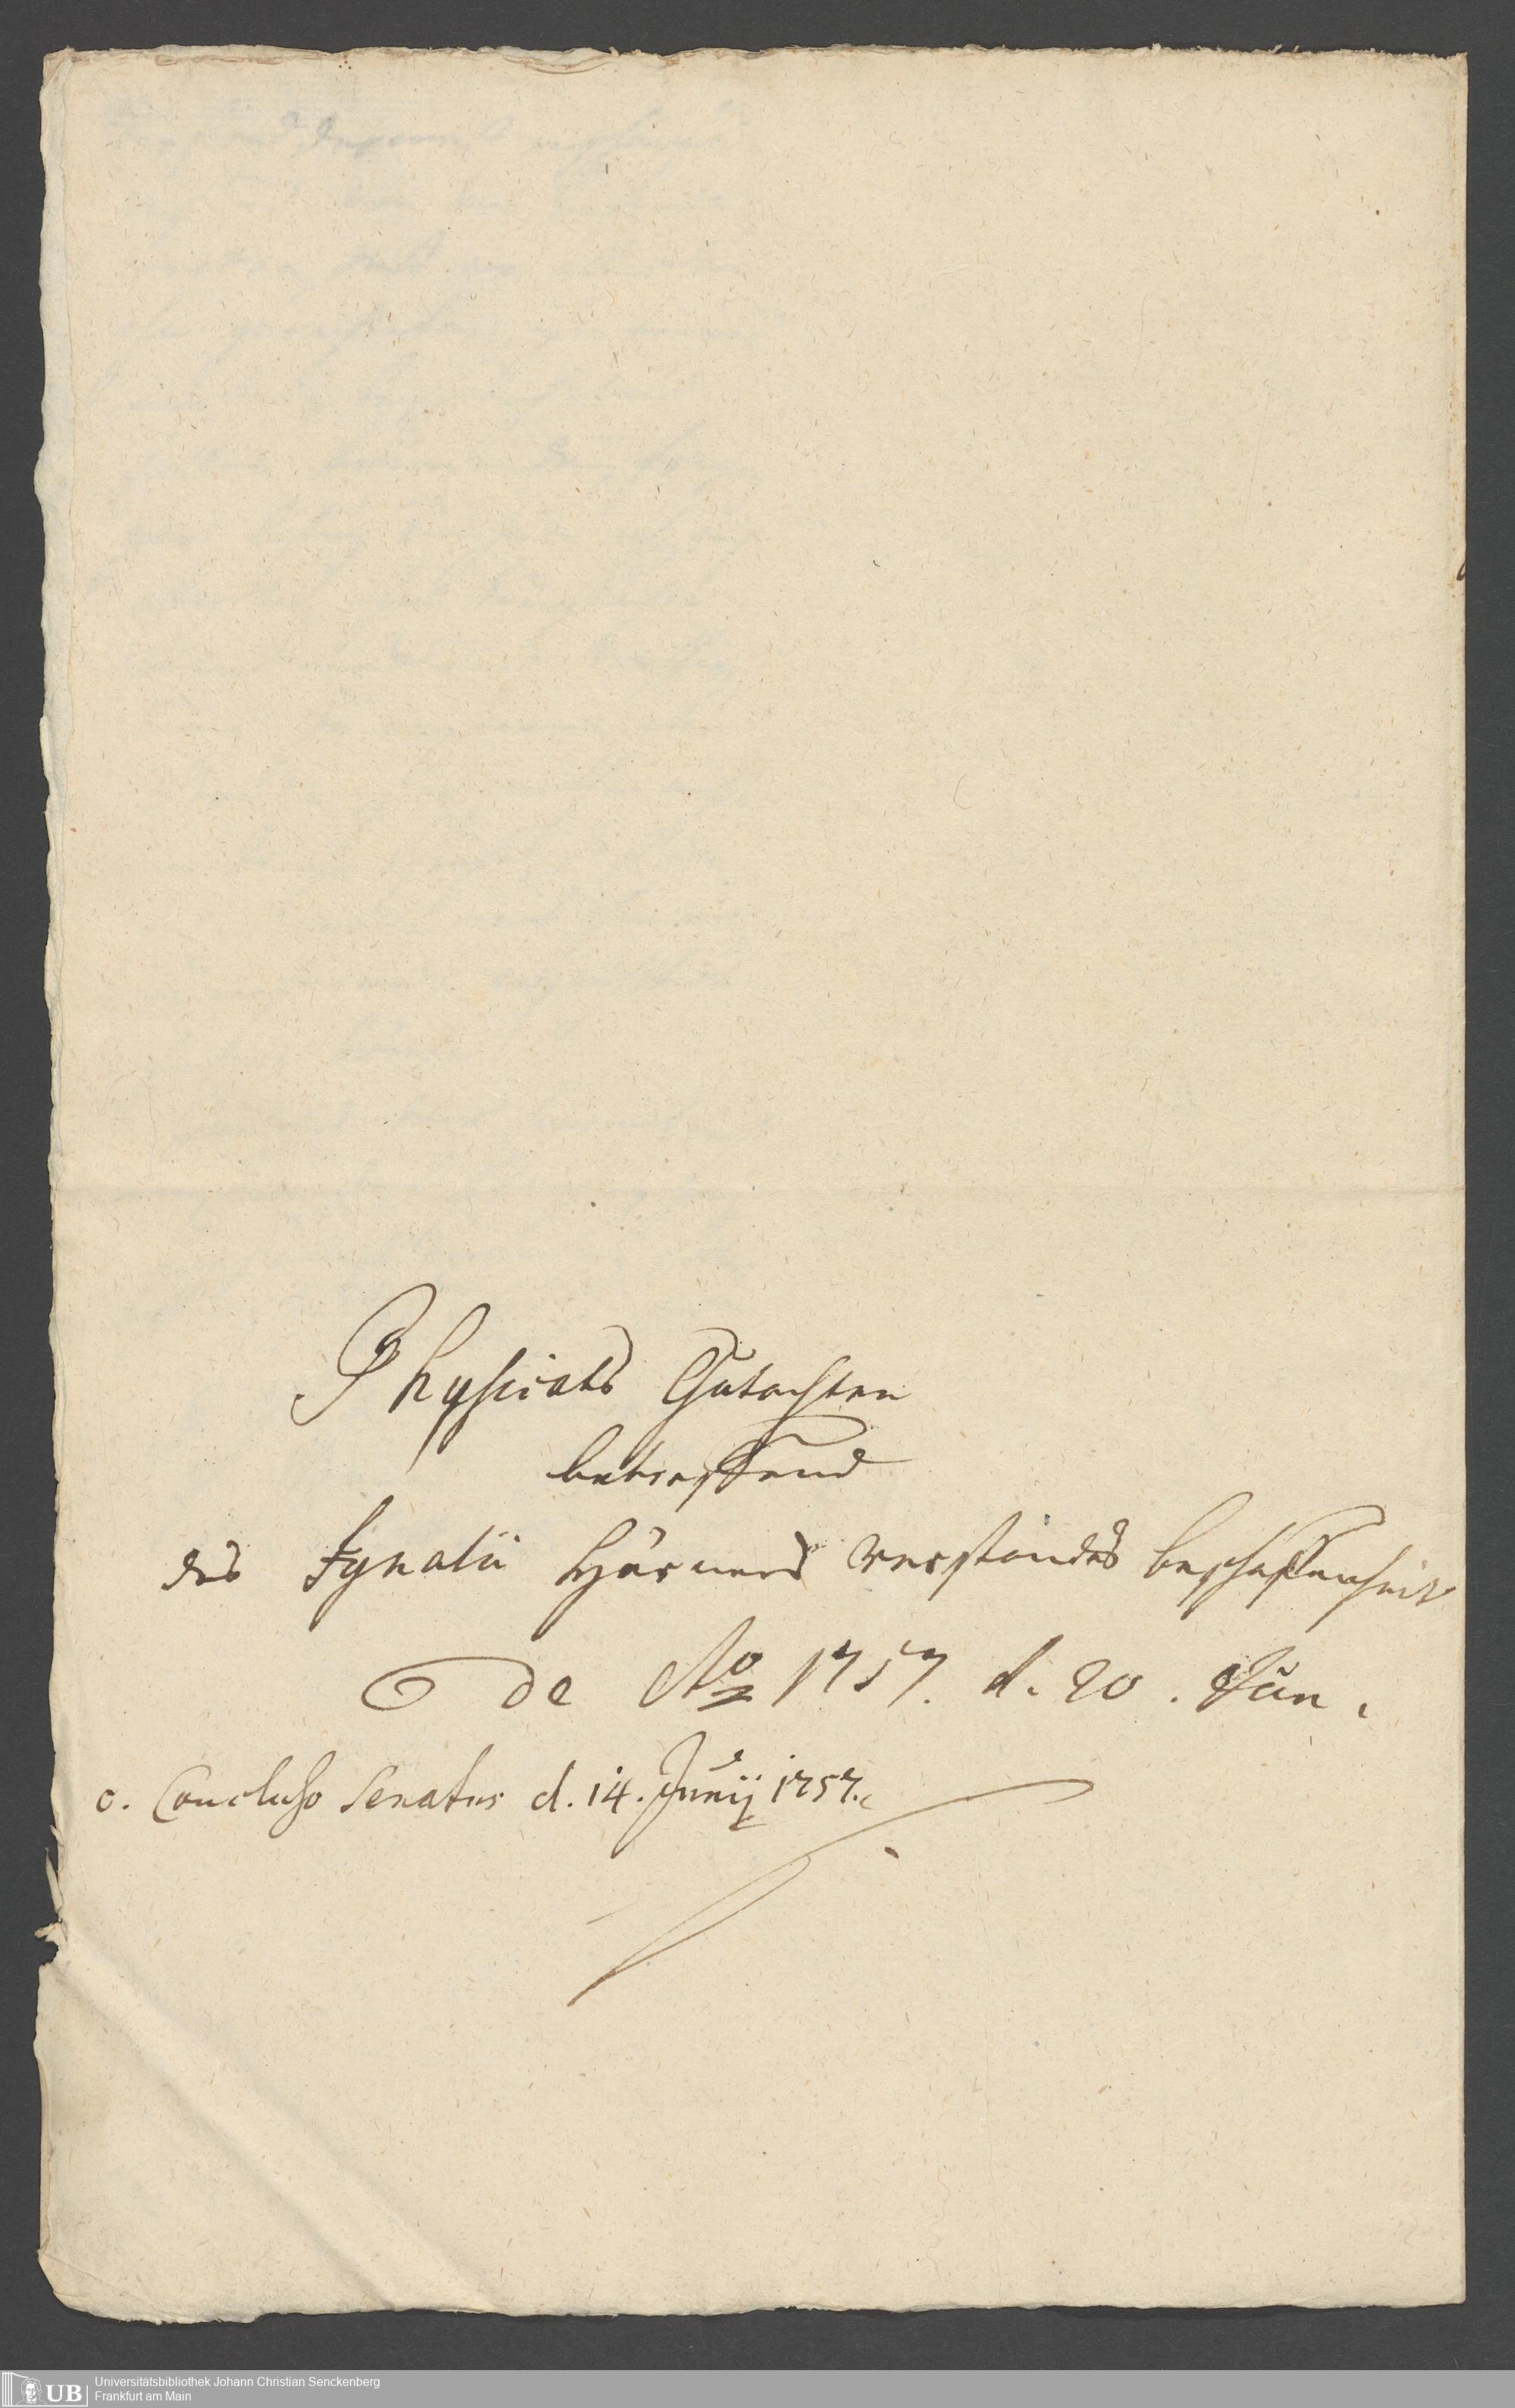 Physicats Gutachten
betreffend
des Ignatii Hörners verstandes beschaffenheit
de Ao 1757. d. 20. Jun.
o. Concluso Senatus d. 14. Junij 1757.
UB
Universitätsbibliothek Johann Christian Senckenberg
Frankfurt am Main